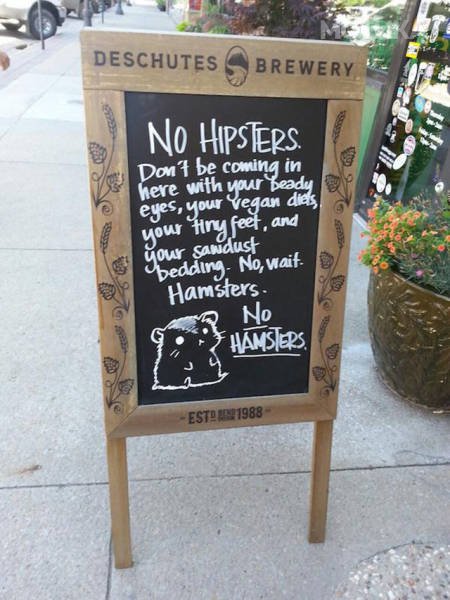 DESCHUTES BREWERY
No HIPSTERS.
Don't be coming in
here with your beady
eyes, your vegan diets,
your tiny feet, and
your sawdust
bedding. No, wait.
Hamsters.
No
HAMSTERS.
ESTD BEND 1988